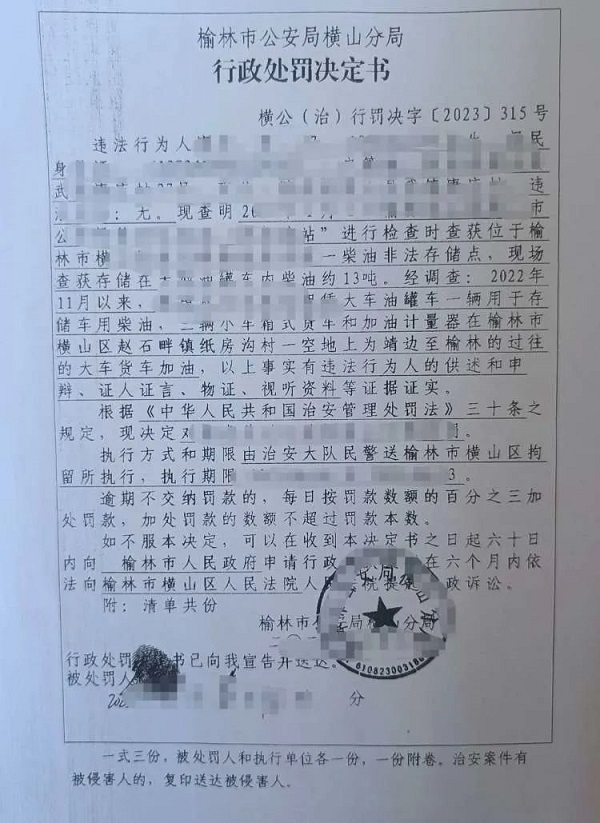 榆林市公安局横山分局
行政处罚决定书
横公（治）行罚决字〔2023〕315号
违法行为人 民
身
武 违
：无。现查明20 市
公 站”进行检查时查获位于榆
林市横 一柴油非法存储点，现场
查获存储在 油罐车内柴油约13吨。经调查：2022年
11月以来， 大车油罐车一辆用于存
储车用柴油，二辆小车箱式货车和加油计量器在榆林市
横山区赵石畔镇纸房沟村一空地上为靖边至榆林的过往
的大车货车加油，以上事实有违法行为人的供述和申
辩、证人证言、物证、视听资料等证据证实。
根据《中华人民共和国治安管理处罚法》三十条之
规定，现决定对
执行方式和期限由治安大队民警送榆林市横山区拘
留所执行，执行期限 3。
逾期不交纳罚款的，每日按罚款数额的百分之三加
处罚款，加处罚款的数额不超过罚款本数。
如不服本决定，可以在收到本决定书之日起六十日
内向 榆林市人民政府申请行政 在六个月内依
法向榆林市横山区人民法院人 政诉讼。
附：清单共份
榆林市 局横山分局
行政处罚 定书已向我宣告并送达。
被处罚人
202 分
一式三份，被处罚人和执行单位各一份，一份附卷。治安案件有
被侵害人的，复印送达被侵害人。